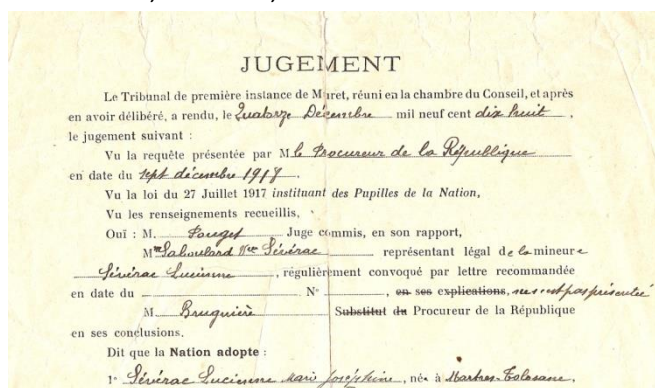 JUGEMENT
Le Tribunal de première instance de Muret, réuni en la chambre du Conseil, et après
en avoir délibéré, a rendu, le Quatorze Décembre mil neuf cent dix huit,
le jugement suivant :
Vu la requête présentée par M le Procureur de la République
en date du sept décembre 1918.
Vu la loi du 27 Juillet 1917 instituant des Pupilles de la Nation,
Vu les renseignements recueillis,
Ouï : M. Pouget Juge commis, en son rapport,
Mme Saboulard Vve Sévérac représentant légal de la mineure
Sévérac Lucienne, régulièrement convoqué par lettre recommandée
en date du N° , en ses explications, ne s'est pas présentée
M. Bruguière Substitut du Procureur de la République
en ses conclusions.
Dit que la Nation adopte :
1° Sévérac Lucienne Marie Joséphine, née à Martres-Tolosane,